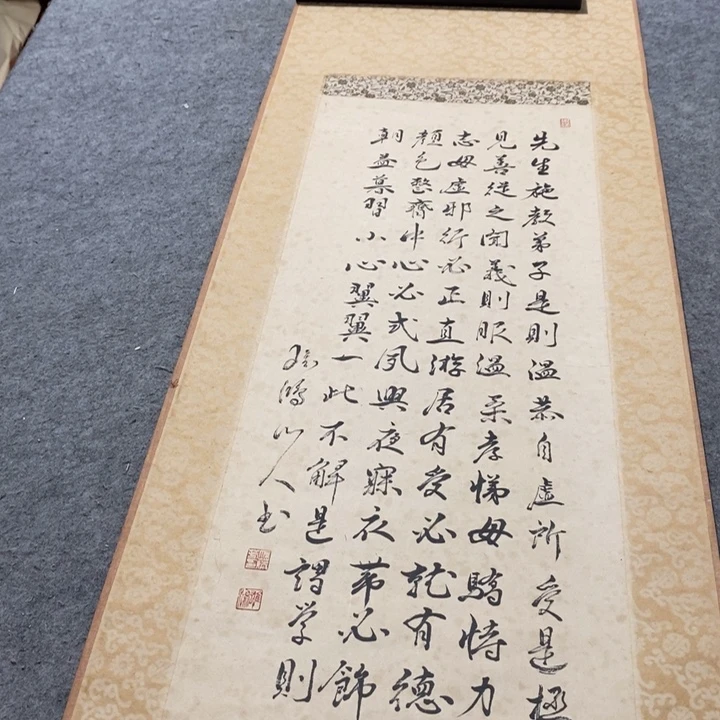 先生施教弟子是則温恭自虚所受是極
見善従之聞義則服温柔孝悌毋驕恃力
志毋虚邪行必正直游居有常必就有德
顔色整齊中心必式夙興夜寐衣帯必飾
朝益暮習小心翼翼一此不解是謂学則
鴻山人书